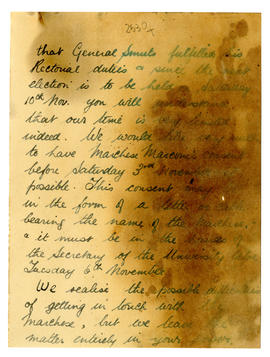 that General Smuts fulfilled his
Rectorial duties & since the next
election is to be held Saturday
10th Nov. you will understand
that our time is very limited
indeed. We would like very much
to have Marchese Marconi's consent
before Saturday 3rd November if
possible. This consent may
in the form of a letter
bearing the name of the Marchese,
& it must be in the hands of
the Secretary of the University
Tuesday 6th November.
We realise the possible
of getting in touch with
Marchese, but we leave the
matter entirely in your